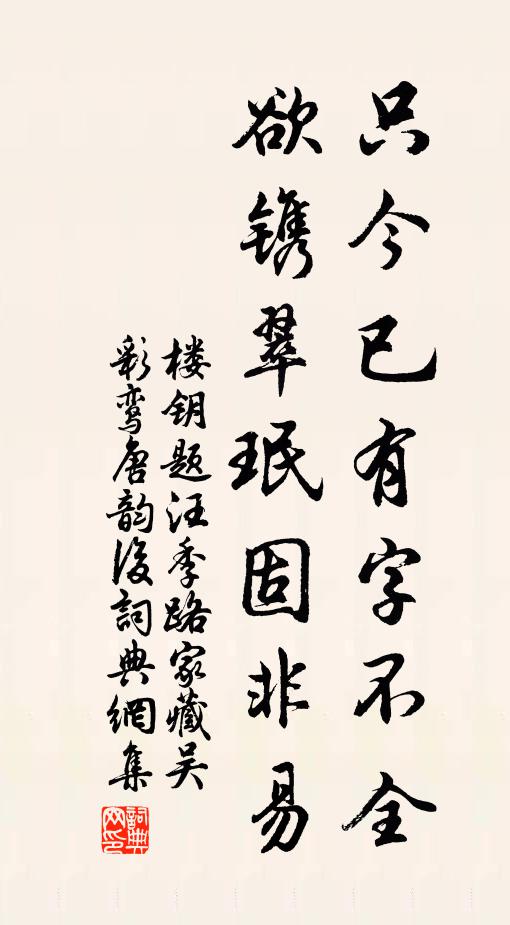 只今已有字不全
欲镌翠珉固非易
楼钥题汪季路家藏吴
彩鸾唐韵後詞典網集
詞典网印